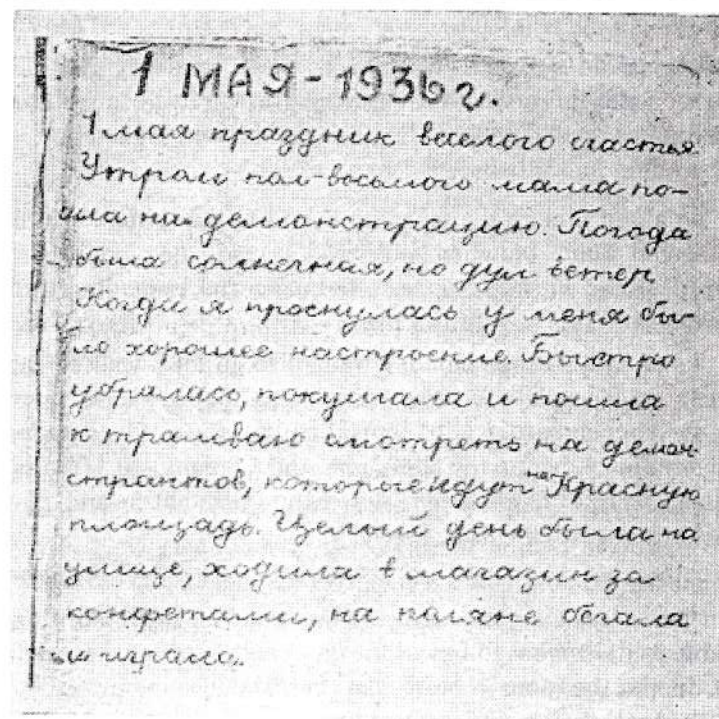 1 МАЯ - 1936 г.
1 мая праздник веселого счастья.
Утром пол-восьмого мама по-
шла на демонстрацию. Погода
была солнечная, но дул ветер
Когда я проснулась у меня бы-
ло хорошее настроение. Быстро
убралась, покушала и пошла
к трамваю смотреть на демон-
странтов, которые идут на Красную
площадь. Целый день была на
улице, ходила в магазин за
конфетами, на поляне бегала
и играла.